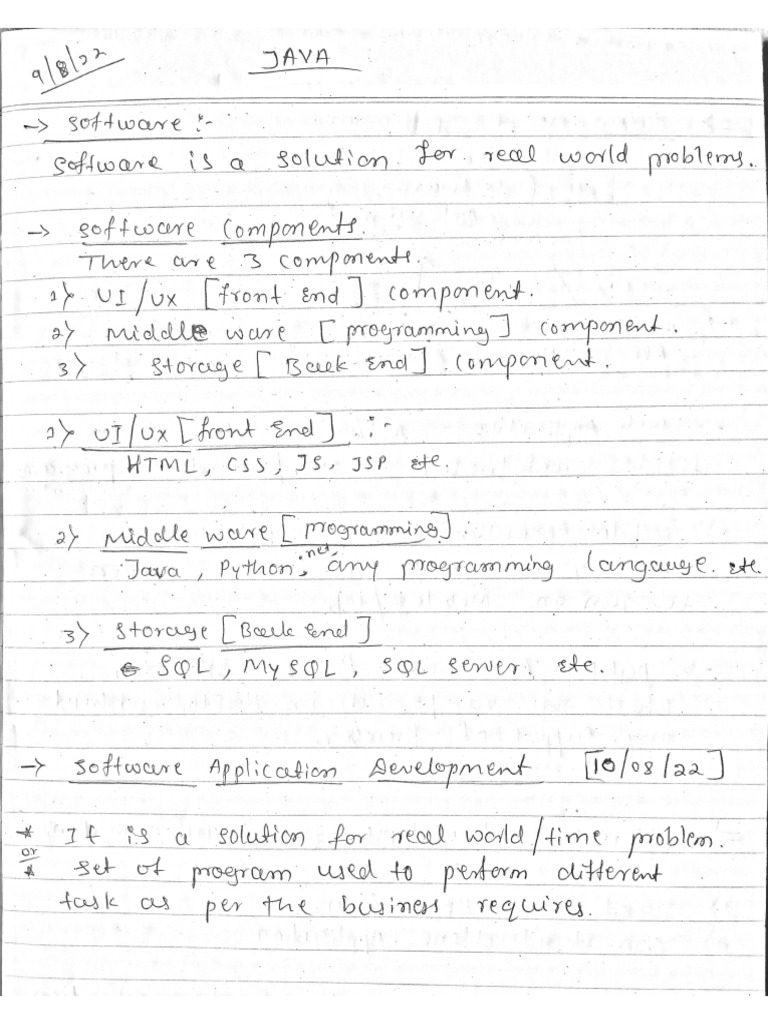 9/8/22
JAVA
-> Software :-
Software is a solution for real world problems.
-> Software Components.
There are 3 components.
1) UI/UX [front End] component.
2) Middle ware [programming] component.
3) Storage [Back End] component.
1) UI/UX [front End] :-
HTML, CSS, JS, JSP etc.
2) Middle ware [programming].
Java, Python, .net, any programming langauge. etc.
3) Storage [Back End]
SQL, MySQL, SQL Server. etc.
-> Software Application Development [10/08/22]
* It is a solution for real world/time problem.
or
* set of program used to perform different
task as per the business requires.